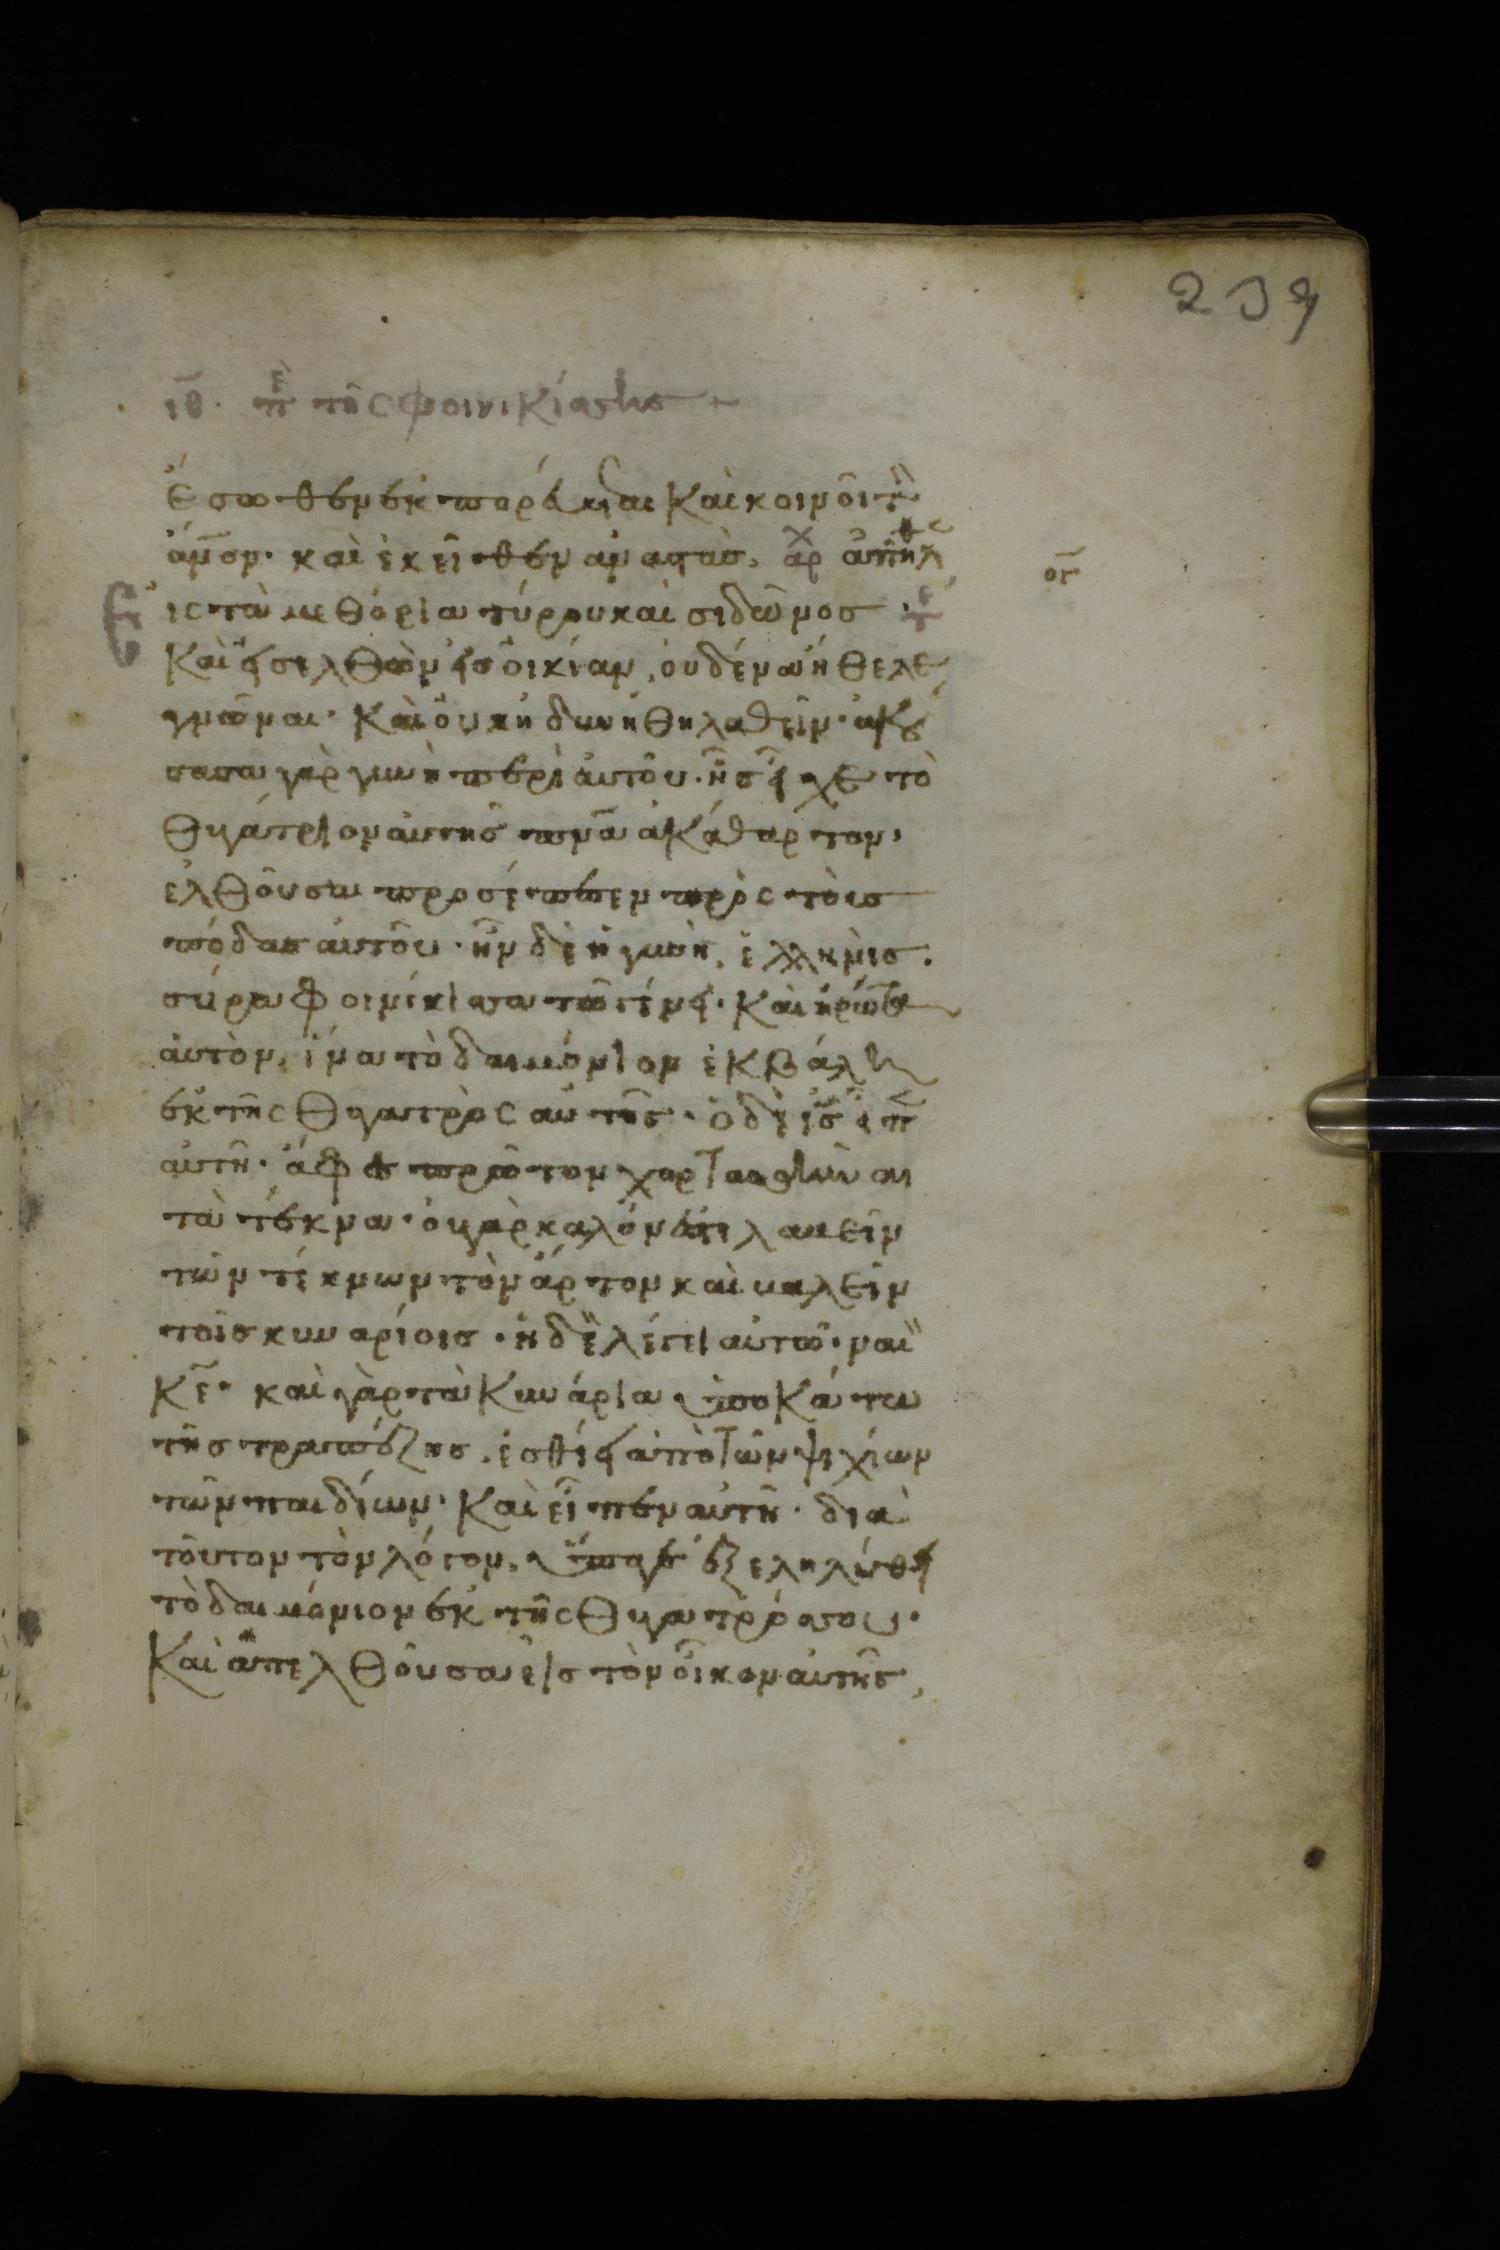 239
ιθ̅. πὲ τῆς φοινικίσσης
ἔσωθεν ἐκπορεύεται καὶ κοινοῖ τὸν
ἄν̅ον· καὶ ἐκεῖθεν ἀναστὰς, αρχ ἀπῆλθεν
ογ̅
εἰς τὰ μεθόρια τύρου καὶ σιδῶνος· τε
Καὶ εἰσελθὼν εἰς οἰκίαν, οὐδένα ἤθελε
γνῶναι· Καὶ οὐκ ἠδυνήθη λαθεῖν· ἀκού
σασα γὰρ γυνὴ περὶ αὐτοῦ· ἧς εἶχε τὸ
θυγάτριον αὐτῆς πνᾶ ἀκάθαρτον,
ἐλθοῦσα προσέπεσεν πρὸς τοὺς
πόδας αὐτοῦ· ἦν δὲ ἡ γυνὴ, ἑλληνὶς.
σύρα φοινίκισσα τῶ γένει· Καὶ ἠρώτα
αὐτὸν, ἵνα τὸ δαιμόνιον ἐκβάλη
ἐκ τῆς θυγατρὸς αὐτῆς· ὁ δὲ ι̅ς̅ εἶπεν
αὐτῆ· ἄφες πρῶτον χορτασθῆναι
τὰ τέκνα· οὐ γὰρ καλόν ἐστι λαβεῖν
τῶν τέκνων τὸν ἄρτον καὶ βαλεῖν
τοῖς κυναρίοις· ἡ δὲ λέγει αὐτῶ· ναὶ
κ̅ε̅· καὶ γὰρ τὰ κυνάρια ὑποκάτω
τῆς τραπέζης, ἐσθίει ἀπὸ τῶν ψιχίων
τῶν παιδίων· Καὶ εἶπεν αὐτῆ· διὰ
τοῦτον τὸν λόγον, ὕπαγε ἐξελήλυθε
τὸ δαιμόνιον ἐκ τῆς θυγατρός σου·
Καὶ ἀπελθοῦσα εἰς τὸν οἶκον αὐτῆς,